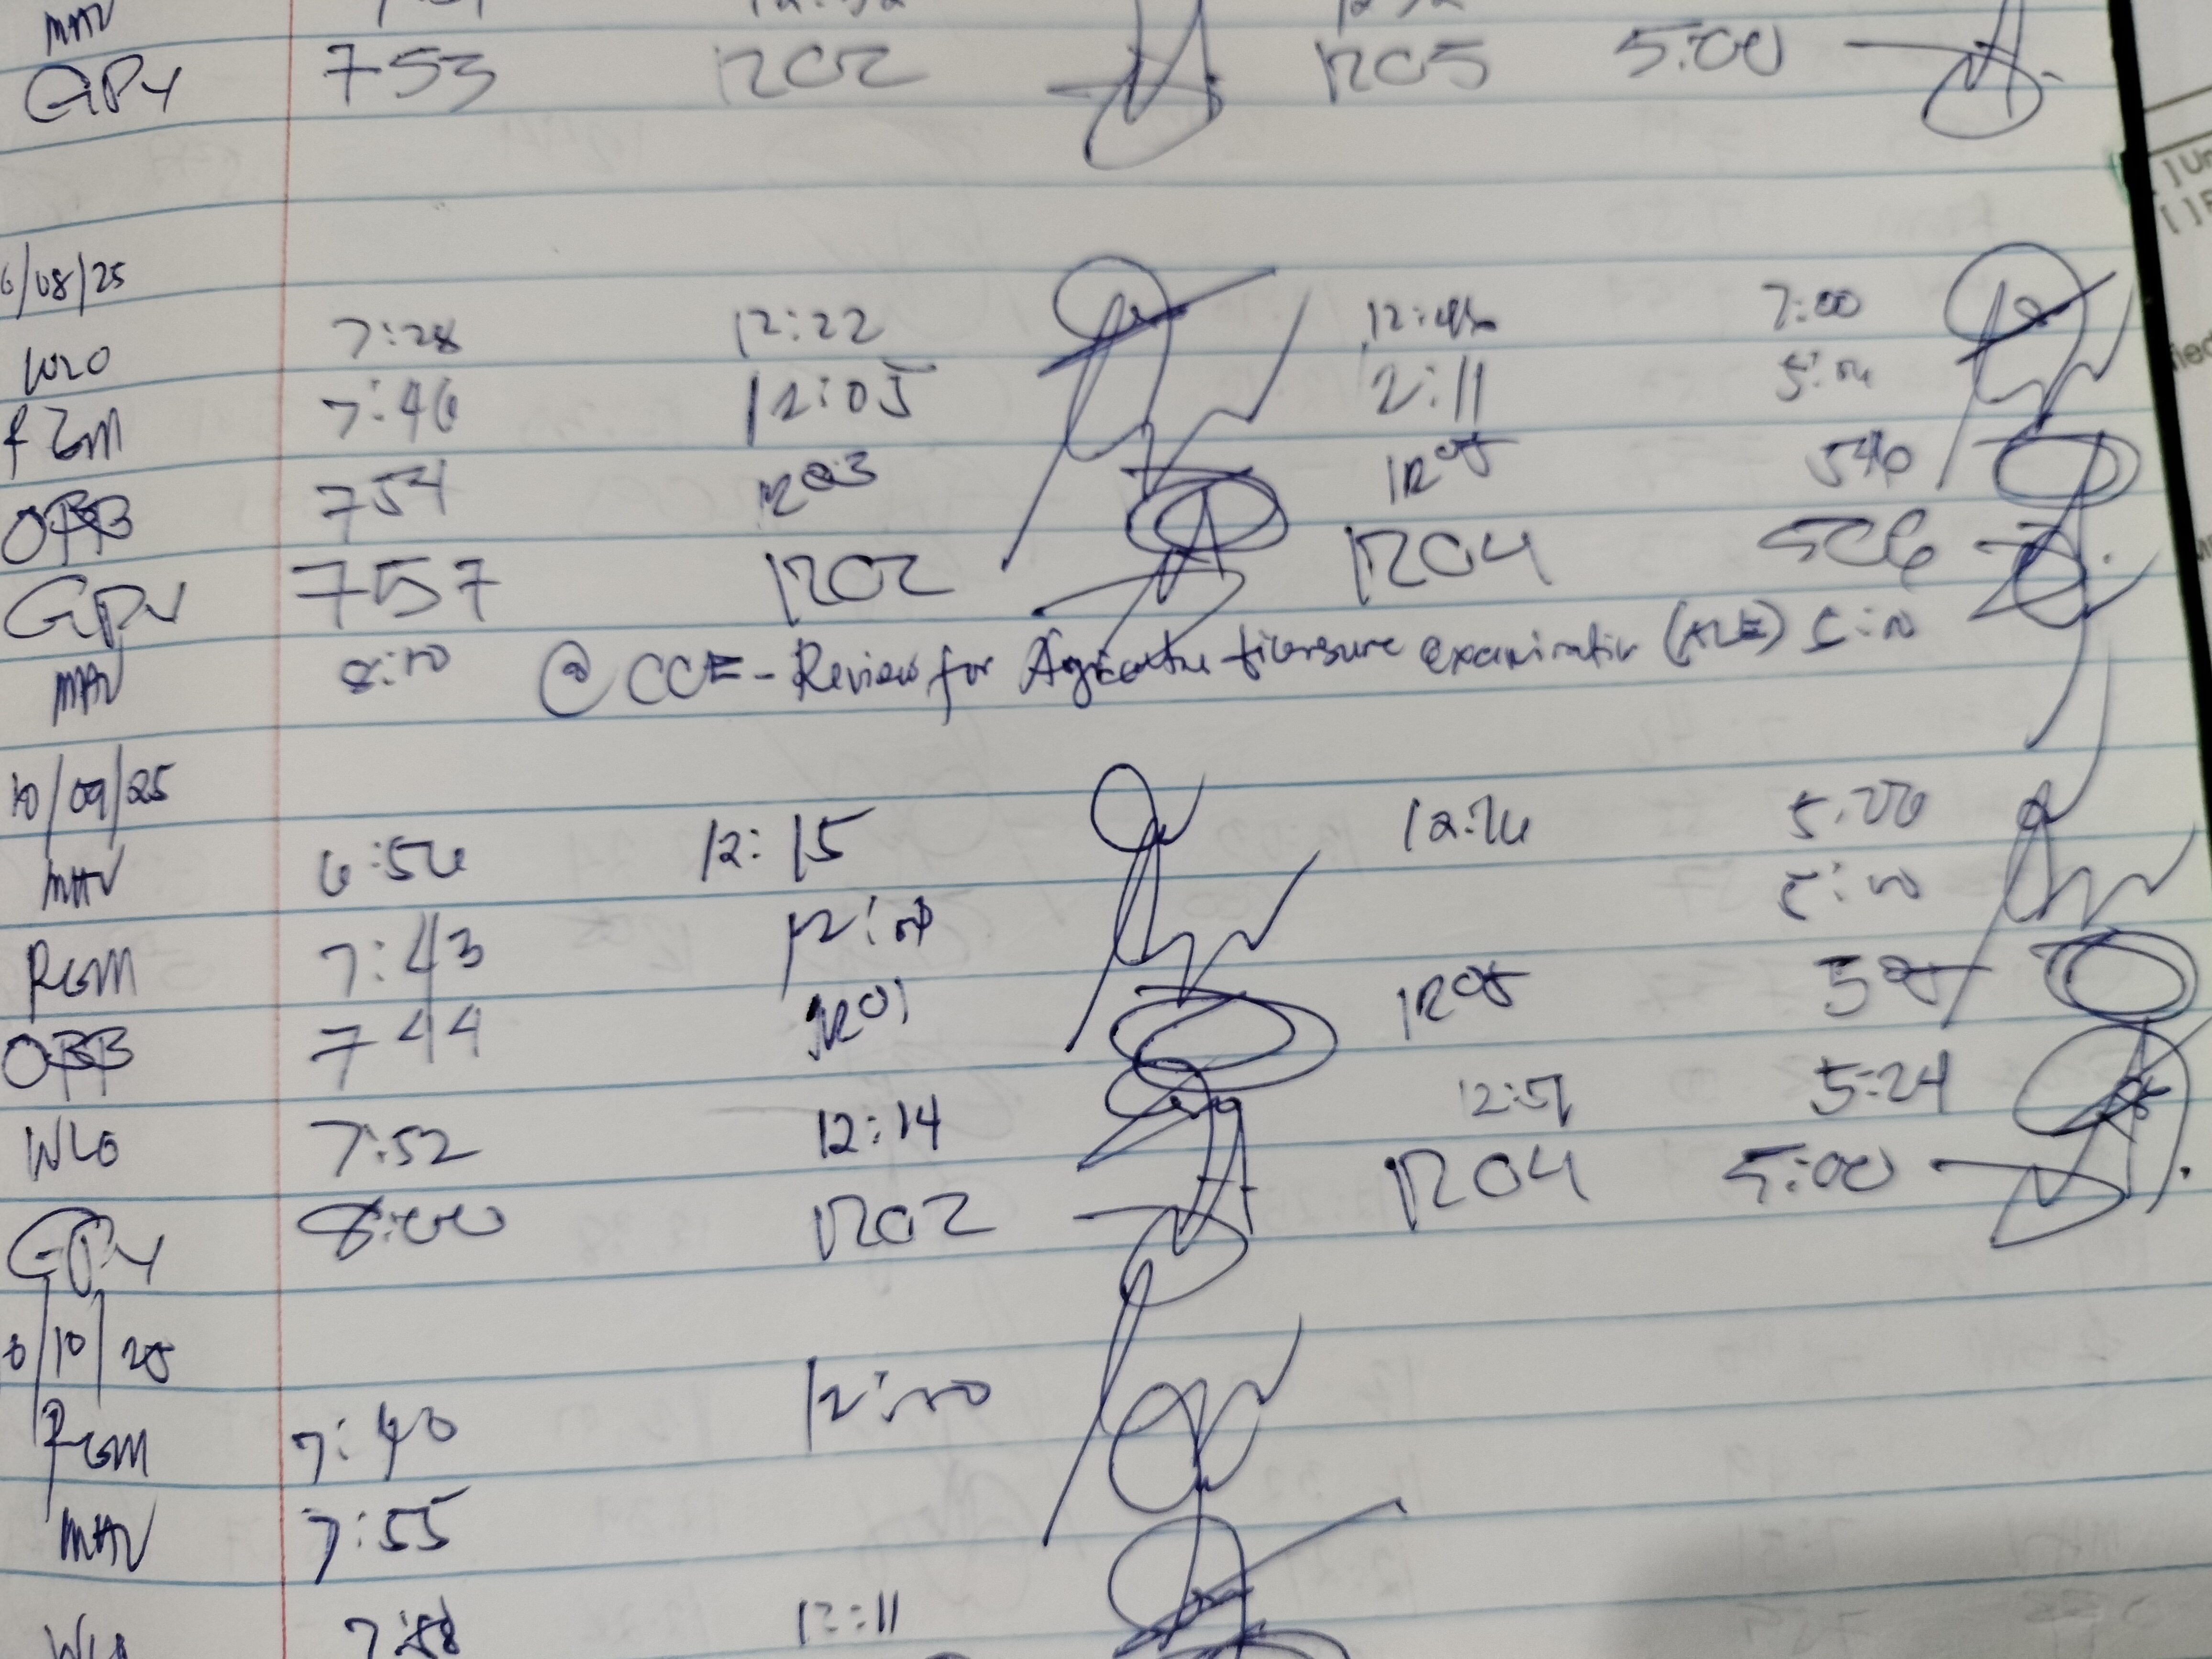 MAV
GPY 753 1202 1205 5:00
/08/25
WLO 7:28 12:22 7:00
7:46 12:05 2:11
OBB 754 1203 1205 546
GPY 757 1202 1204 506
MAV 8:10 @ CCE - Review for Agriculture Licensure Examination (ALE) 5:10
10/09/25
MAV 6:56 12:15
RGM 7:43
OBB 744 1201 1205 505
WLO 7:52 12:14 12:51 5:24
GPY 8:00 1202 1204 5:00
/10/25
RGM 7:40 12:10
MAV 7:55
WLO 7:58 12:11
[ ] Un
[ ] P